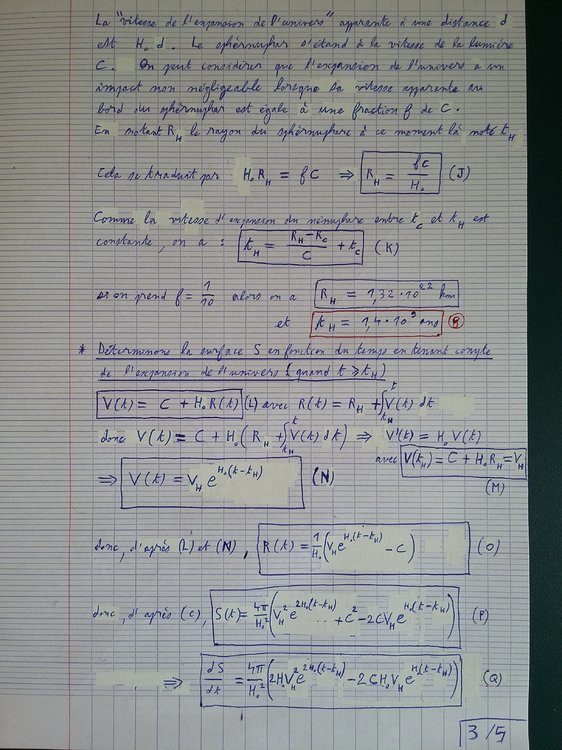 La "vitesse de l'expansion de l'univers" apparante à une distance d
est H₀ d. Le sphérnuphar s'étand à la vitesse de la lumière
C. On peut considérer que l'expansion de l'univers a un
impact non négligeable lorsque sa vitesse apparante au
bord du sphérnuphar est égale à une fraction f de C.
En notant R_H le rayon du sphérnuphare à ce moment là noté t_H
Cela se traduit par H₀ R_H = fC ⇒ R_H = fC/H₀ (J)
Comme la vitesse d'expansion du nénuphare entre t_c et t_H est
constante, on a : t_H = (R_H - R_c)/C + t_c (K)
si on prend f = 1/10 alors on a R_H = 1,32·10²² km
et t_H = 1,4·10⁹ ans
* Déterminons la surface S en fonction du temps en tenant compte
de l'expansion de l'univers (quand t ⩾ t_H)
V(t) = C + H₀R(t) (L) avec R(t) = R_H + ∫_{t_H}^{t} V(t) dt
donc V(t) = C + H₀(R_H + ∫_{t_H}^{t} V(t) dt) ⇒ V'(t) = H₀ V(t)
avec V(t_H) = C + H₀R_H = V_H
(M)
⇒ V(t) = V_H e^{H₀(t-t_H)} (N)
donc, d'après (L) et (N), R(t) = 1/H₀ (V_H e^{H₀(t-t_H)} - C) (O)
donc, d'après (C), S(t) = 4π/H₀² (V_H² e^{2H₀(t-t_H)} ... + C² - 2CV_H e^{H₀(t-t_H)}) (P)
⇒ dS/dt = 4π/H₀² (2H₀V_H² e^{2H₀(t-t_H)} - 2CH₀V_H e^{H₀(t-t_H)}) (Q)
3/5